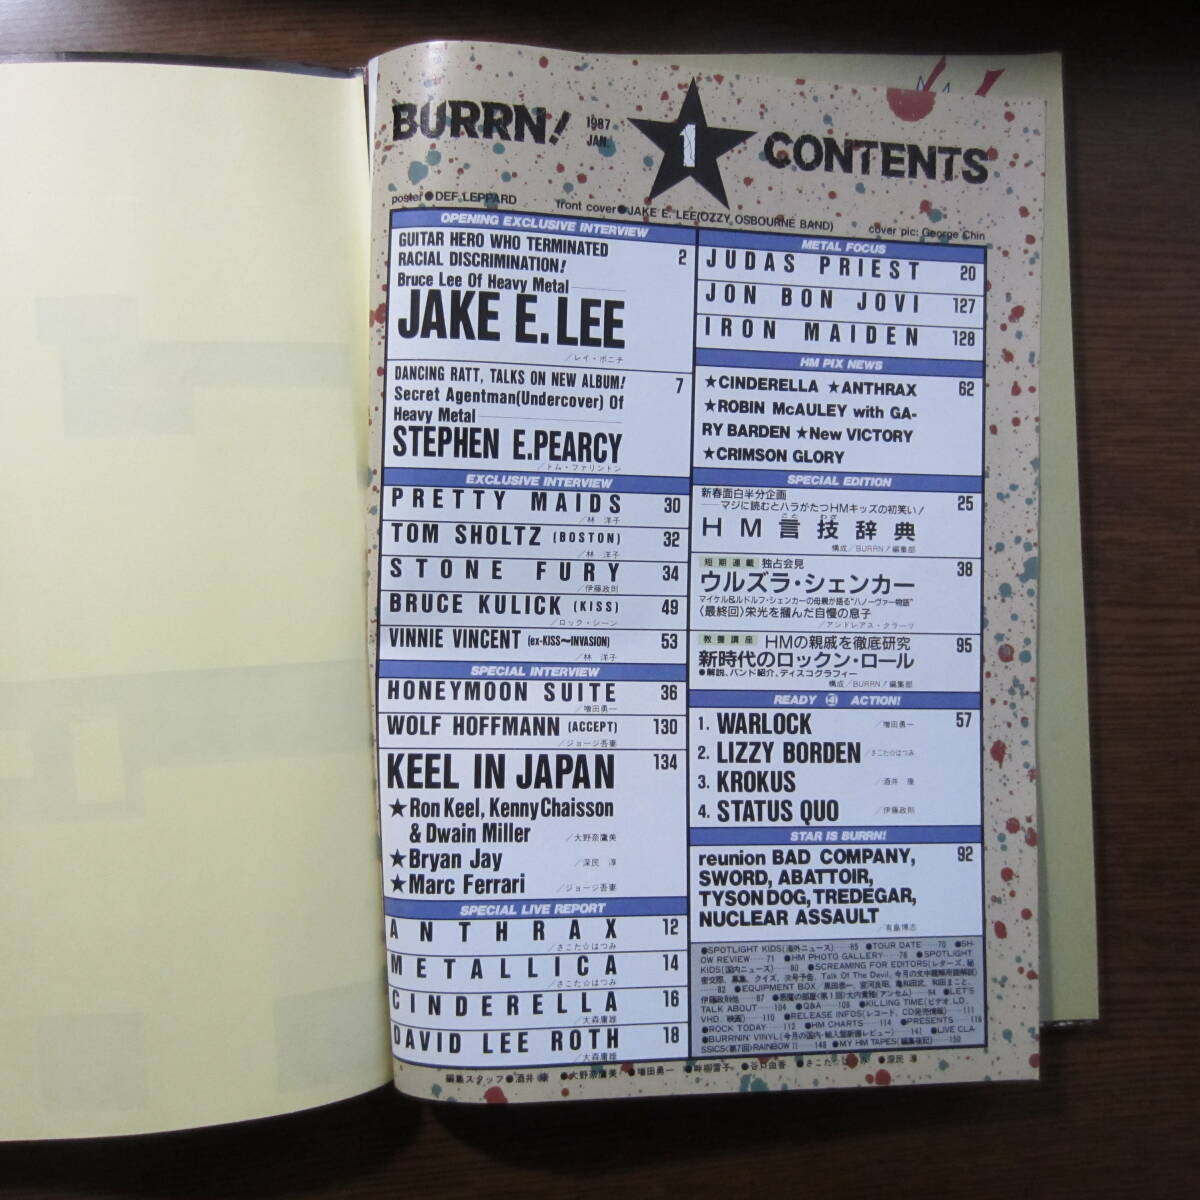 BURRN! 1987 JAN. 1 CONTENTS
poster●DEF LEPPARD front cover●JAKE E. LEE(OZZY OSBOURNE BAND) cover pic: George Chin
OPENING EXCLUSIVE INTERVIEW
GUITAR HERO WHO TERMINATED 2
RACIAL DISCRIMINATION!
Bruce Lee Of Heavy Metal
JAKE E. LEE
/レイ・ボニチ
DANCING RATT, TALKS ON NEW ALBUM! 7
Secret Agentman(Undercover) Of
Heavy Metal
STEPHEN E.PEARCY
/トム・ファリントン
EXCLUSIVE INTERVIEW
PRETTY MAIDS 30
/林 洋子
TOM SHOLTZ (BOSTON) 32
/林 洋子
STONE FURY 34
/伊藤政則
BRUCE KULICK (KISS) 49
/ロック・シーン
VINNIE VINCENT (ex-KISS〜INVASION) 53
/林 洋子
SPECIAL INTERVIEW
HONEYMOON SUITE 36
/増田勇一
WOLF HOFFMANN (ACCEPT) 130
/ジョージ吾妻
KEEL IN JAPAN 134
★Ron Keel, Kenny Chaisson
& Dwain Miller /大野奈鷹美
★Bryan Jay /深民 淳
★Marc Ferrari /ジョージ吾妻
SPECIAL LIVE REPORT
ANTHRAX 12
/さこた☆はつみ
METALLICA 14
/さこた☆はつみ
CINDERELLA 16
/大森庸雄
DAVID LEE ROTH 18
/大森庸雄
METAL FOCUS
JUDAS PRIEST 20
JON BON JOVI 127
IRON MAIDEN 128
HM PIX NEWS
★CINDERELLA ★ANTHRAX 62
★ROBIN McAULEY with GA-
RY BARDEN ★New VICTORY
★CRIMSON GLORY
SPECIAL EDITION
新春面白半分企画 25
──マジに読むとハラがたつHMキッズの初笑い!
HM言技辞典
構成/BURRN!編集部
短期連載 独占会見 38
ウルズラ・シェンカー
マイケル&ルドルフ・シェンカーの母親が語る“ハノーヴァー物語”
〈最終回〉栄光を掴んだ自慢の息子
/アンドレアス・クラーツ
教養講座 HMの親戚を徹底研究 95
新時代のロックン・ロール
●解説、バンド紹介、ディスコグラフィー
構成/BURRN!編集部
READY ④ ACTION!
1. WARLOCK /増田勇一 57
2. LIZZY BORDEN /さこた☆はつみ
3. KROKUS /酒井 康
4. STATUS QUO /伊藤政則
STAR IS BURRN!
reunion BAD COMPANY, 92
SWORD, ABATTOIR,
TYSON DOG, TREDEGAR,
NUCLEAR ASSAULT
/有島博志
●SPOTLIGHT KIDS(海外ニュース)……65 ●TOUR DATE……70 ●SH-
OW REVIEW……71 ●HM PHOTO GALLERY……76 ●SPOTLIGHT
KIDS(国内ニュース)……80 ●SCREAMING FOR EDITORS(レターズ、秘
密交際、募集、クイズ、次号予告、Talk Of The Devil、今月の文中難解用語解説)
……82 ●EQUIPMENT BOX/黒田恭一、室河良昭、亀和田武、和田まこと、
伊藤政則他……87 ●悪魔の部屋(第1回)大内貴雅(アンセム)……94 ●LET'S
TALK ABOUT……104 ●Q&A……109 ●KILLING TIME(ビデオ、LD、
VHD、映画)……110 ●RELEASE INFOS(レコード、CD発売情報)……111
●ROCK TODAY……112 ●HM CHARTS……114 ●PRESENTS……118
●BURRNIN' VINYL(今月の国内・輸入盤新譜レビュー)……141 ●LIVE CLA-
SSICS(第7回)RAINBOW II……148 ●MY HM TAPES(編集後記)……150
編集スタッフ●酒井 康 ●大野奈鷹美 ●増田勇一 ●畔柳雪子 ●谷口由香 ●さこた☆はつみ ●深民 淳